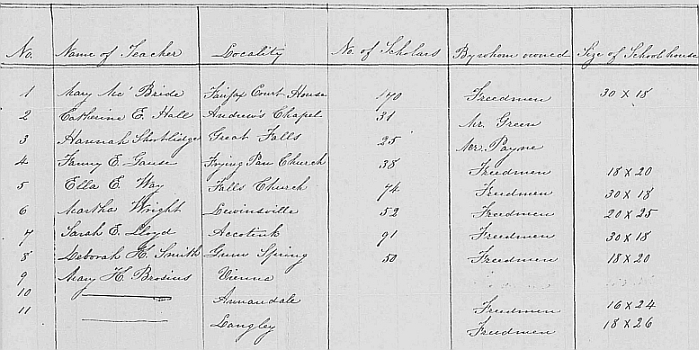 No. Name of Teacher Locality No. of Scholars By whom owned Size of School house
1 Mary Mc Bride Fairfax Court House 170 Freedmen 30 x 18
2 Catherine E. Hall Andrew's Chapel 31 Mr. Green
3 Hannah Shortlidge Great Falls 25 Mr. Payne
4 Fanny E. Gause Frying Pan Church 38 Freedmen 18 x 20
5 Ella E. Way Falls Church 74 Freedmen 30 x 18
6 Martha Wright Lewinsville 52 Freedmen 20 x 25
7 Sarah E. Lloyd Accotink 91 Freedmen 30 x 18
8 Deborah K. Smith Gum Spring 50 Freedmen 18 x 20
9 Mary K. Brosius Vienna
10 Annandale Freedmen 16 x 24
11 Langley Freedmen 18 x 26